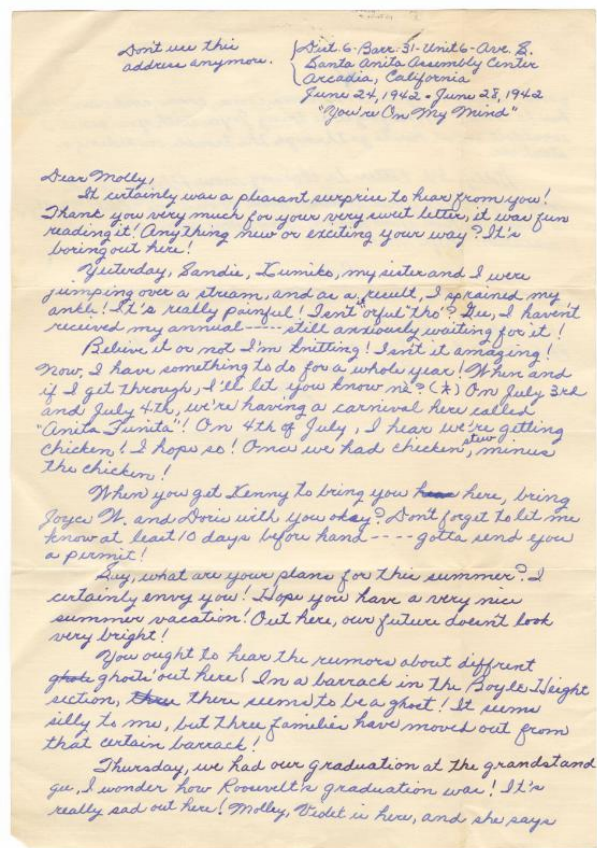 Don't use this
address anymore.
Dist. 6 - Barr. 31 - Unit 6 - Ave. S.
Santa Anita Assembly Center
Arcadia, California
June 24, 1942 - June 28, 1942
"You're On My Mind"
Dear Molly,
It certainly was a pleasant surprise to hear from you!
Thank you very much for your very sweet letter, it was fun
reading it! Anything new or exciting your way? It's
boring out here!
Yesterday, Sandie, Kumiko, my sister and I were
jumping over a stream, and as a result, I sprained my
ankle! It's really painful! Isn't "orful tho"? Gee, I haven't
received my annual ----- still anxiously waiting for it!
Believe it or not I'm knitting! Isn't it amazing!
Now, I have something to do for a whole year! When and
if I get through, I'll let you know me? (*) On July 3rd
and July 4th, we're having a carnival here called
"Anita Funita"! On 4th of July, I hear we're getting
chicken! I hope so! Once we had chicken stew, minus
the chicken!
When you get Kenny to bring you here, bring
Joyce W. and Doris with you okay? Don't forget to let me
know at least 10 days before hand ---- gotta send you
a permit!
Say, what are your plans for this summer? I
certainly envy you! Hope you have a very nice
summer vacation! Out here, our future doesn't look
very bright!
You ought to hear the rumors about diffrent
ghosts out here! In a barrack in the Boyle Height
section, there seems to be a ghost! It seems
silly to me, but three families have moved out from
that certain barrack!
Thursday, we had our graduation at the grandstand
gee, I wonder how Roosevelt's graduation was! It's
really sad out here! Molly, is here, and she says